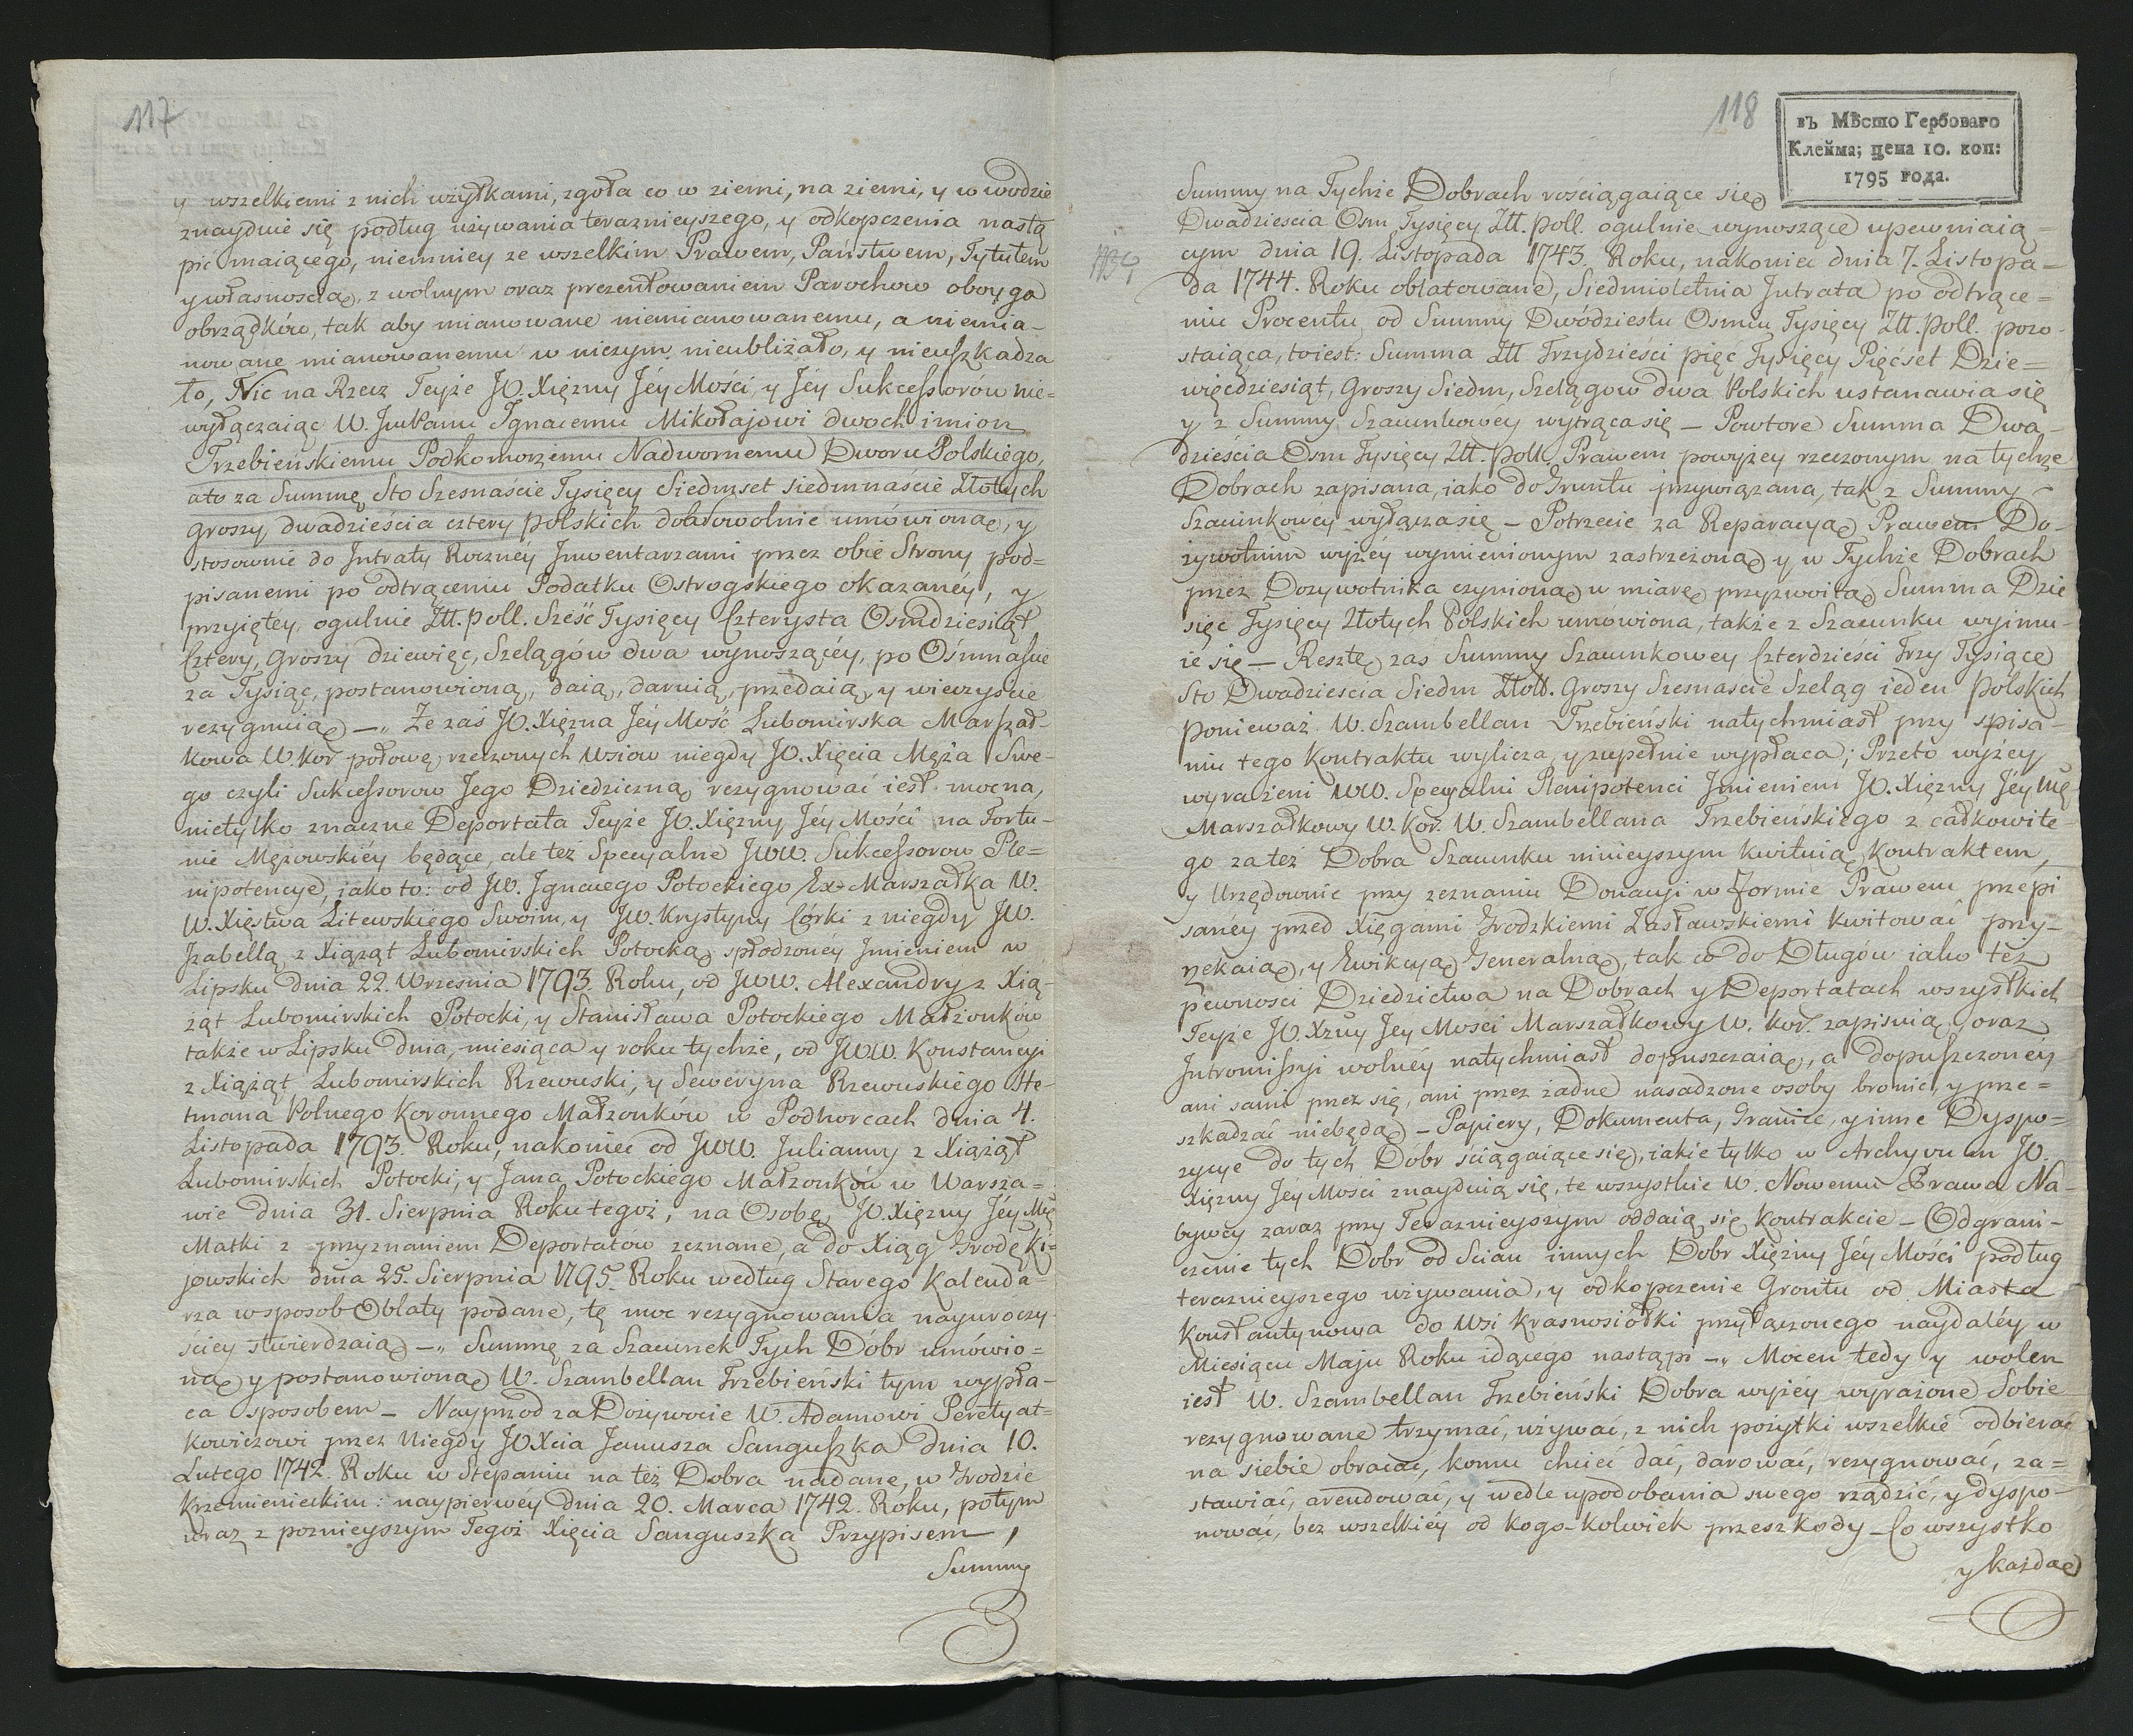 117
y wszelkiemi z nich użytkami, zgoła co w ziemi, na ziemi, y w wodzie
znayduie się podług używania teraznieyszego, y odkopczenia nastą
pić maiącego, niemniey ze wszelkim Prawem, Państwem, Tytułem
y własnością, z wolnym oraz prezentowaniem Parochow oboyga
obrządków, tak aby mianowane niemianowanemu, a niemia-
nowane mianowanemu w niczym nieubliżało, y nieuszkadza
ło, Nic na Rzecz Teyże JO. Xiężny Jéy Mości, y Jéy Sukcessorów nie-
wyłączaiąc W. JmPanu Ignacemu Mikołajowi dwoch imion
Trzebieńskiemu Podkomorzemu Nadwornemu Dworu Polskiego,
ato za Summę Sto Szesnaście Tysięcy Siedmset siedmnaście Złotych
groszy, dwadzieścia cztery polskich dobrowolnie umówioną, y
stosownie do Intraty Roczney Inwentarzami przez obie Strony pod=
pisanemi po odtrąceniu Podatku Ostrogskiego okazanéy, y
przyiętey, ogulnie Złł. poll. Sześć Tysięcy Czterysta Osmdziesiąt
Cztery, Groszy dziewięc, Szelągów dwa wynoszącéy, po Ośmnaście
za Tysiąc, postanowioną, daią, daruią, przedaią, y wieczyście
rezygnuią —" Że zaś JO. Xiężna Jéy Mość Lubomirska Marszał-
kowa W. Kor. połowę rzeczonych Wsiow niegdy JO. Xięcia Męża Swe-
go czyli Sukcessorow Jego Dziedziczną rezygnować iest mocna,
nietylko znaczne Deportata Teyże JO. Xiężny Jéy Mości na Fortu-
nie Mężowskiéy będące, ale też Specyalne JWW. Sukcessorow Ple=
nipotencye, iako to: od JW. Ignacego Potockiego Ex-Marszałka W.
W. Xięstwa Litewskiego Swoim, y JW. Krystyny Córki z niegdy JW.
Izabellą z Xiążąt Lubomirskich Potocką spłodzonéy Imieniem w
Lipsku dnia 22. Wrzesnia 1793. Roku, od JWW. Alexandry z Xią-
żąt Lubomirskich Potocki, y Stanisława Potockiego Małżonków
także w Lipsku dnia, miesiąca y roku tychże, od JWW. Konstancyi
z Xiążąt Lubomirskich Rzewuski, y Seweryna Rzewuskiego He-
tmana Polnego Koronnego Małżonków w Podhorcach dnia 4.
Listopada 1793. Roku, nakoniec od JWW. Julianny z Xiążąt
Lubomirskich Potocki, y Jana Potockiego Małżonków w Warsza=
wie dnia 31. Sierpnia Roku tegoż, na Osobę JO. Xiężny Jéy Mci
Matki z przyznaniem Deportatów zeznane, a do Xiąg Grodz. Ki=
jowskich dnia 25. Sierpnia 1795. Roku według Starego Kalenda-
rza w sposob Oblaty podane, tę moc rezygnowania nayuroczy-
ściey stwierdzaią —" Summę za Szacunek Tych Dóbr umówio=
ną y postanowioną W. Szambellan Trzebieński tym wypła-
ca sposobem — Nayprzod za Dożywocie W. Adamowi Peretyat=
kowiczowi przez Niegdy JOXcia Janusza Sanguszka dnia 10.
Lutego 1742. Roku w Stepaniu na też Dobra nadane, w Grodzie
Krzemienieckim: naypierwéy dnia 20. Marca 1742. Roku, potym
wraz z poznieyszym Tegoż Xięcia Sanguszka Przypisem,
Summy
118
въ Мѣсто Гербоваго
Клейма; цена 10. коп:
1795 года.
Summy na Tychże Dobrach rościągaiące się
Dwadziescia Osm Tysięcy Złł. poll. ogulnie wynoszące upewniaią=
cym dnia 19. Listopada 1743. Roku, nakoniec dnia 7. Listopa=
da 1744. Roku oblatowane, Siedmioletnia Intrata po odtrące=
niu Procentu od Summy Dwódziestu Osmiu Tysięcy Złł. poll. pozo-
staiąca, toiest: Summa Złł Trzydzieści pięć Tysięcy Pięćset Dzie=
więćdziesiąt, Groszy Siedm, Szelągow dwa Polskich ustanawia się
y z Summy Szacunkowéy wytrąca się — Powtore Summa Dwa-
dzieścia Osm Tysięcy Złł. poll. Prawem powyżey rzeczonym na tychże
Dobrach zapisana, iako do Gruntu przywiązana, tak z Summy
Szacunkowéy wyłącza się — Potrzecie za Reparacyą Prawem Do-
żywotnim wyżéy wymienionym zastrzeżoną y w Tychże Dobrach
przez Dożywotnika czynioną w miarę przyzwoitą Summa Dzie
sięć Tysięcy Złotych Polskich umówiona, także z Szacunku wyimu-
ie się — Resztę zaś Summy Szacunkowey Czterdzieści Trzy Tysiące
Sto Dwadziescia Siedm Złott. Groszy Szesnaście Szeląg ieden polskich
ponieważ W. Szambellan Trzebieński natychmiast przy spisa-
niu tego Kontraktu wylicza, y zupełnie wypłaca; Przeto wyżey
wyrażeni WW. Specyalni Plenipotenci Imieniem JO. Xiężny Jéy Mci
Marszałkowy W. Kor. W. Szambellana Trzebieńskiego z całkowite-
go za też Dobra Szacunku ninieyszym kwituią Kontraktem,
y Urzędownie przy zeznaniu Donacyi w Formie Prawem przepi
sanéy przed Xięgami Grodzkiemi Zasławskiemi kwitować przy-
rzekaią, y Ewikcyą Generalną, tak co do Długów iako też
pewnosci Dziedzictwa na Dobrach y Deportatach wszystkich
Teyże JO. Xżny Jey Mości Marszałkowy W. Kor. zapisuią, oraz
Intromissyi wolnéy natychmiast dopuszczaią, a dopuszczonéy
ani sami przez się, ani przez żadne nasadzone osoby bronić, y prze=
szkadzać niebędą — Papiery, Dokumenta, Granice, y inne Dyspo=
zycye do tych Dóbr ściągaiące się, iakie tylko w Archyvum JO.
Xiężny Jéy Mości znayduią się, te wszystkie W. Nowemu Prawa Na-
bywcy zaraz przy Teraznieyszym oddaią się Kontrakcie — Odgrani-
czenie tych Dobr od Scian innych Dobr Xiężny Jéy Mości podług
teraznieyszego używania, y odkopczenie Grontu od Miasta
Konstantynowa do Wsi Krasnosiołki przyłączonego naydaléy w
Miesiącu Maju Roku idącego nastąpi —" Mocen tedy y wolen
iest W. Szambellan Trzebieński Dobra wyżéy wyrażone Sobie
rezygnowane trzymać, używać, z nich pożytki wszelkie odbierać
na siebie obracać, komu chcieć dać, darować, rezygnować, za=
stawiać, arendować, y wedle upodobania swego rządzić, y dyspo-
nować, bez wszelkiéy od kogo-kolwiek przeszkody — Co wszystko
y każdą